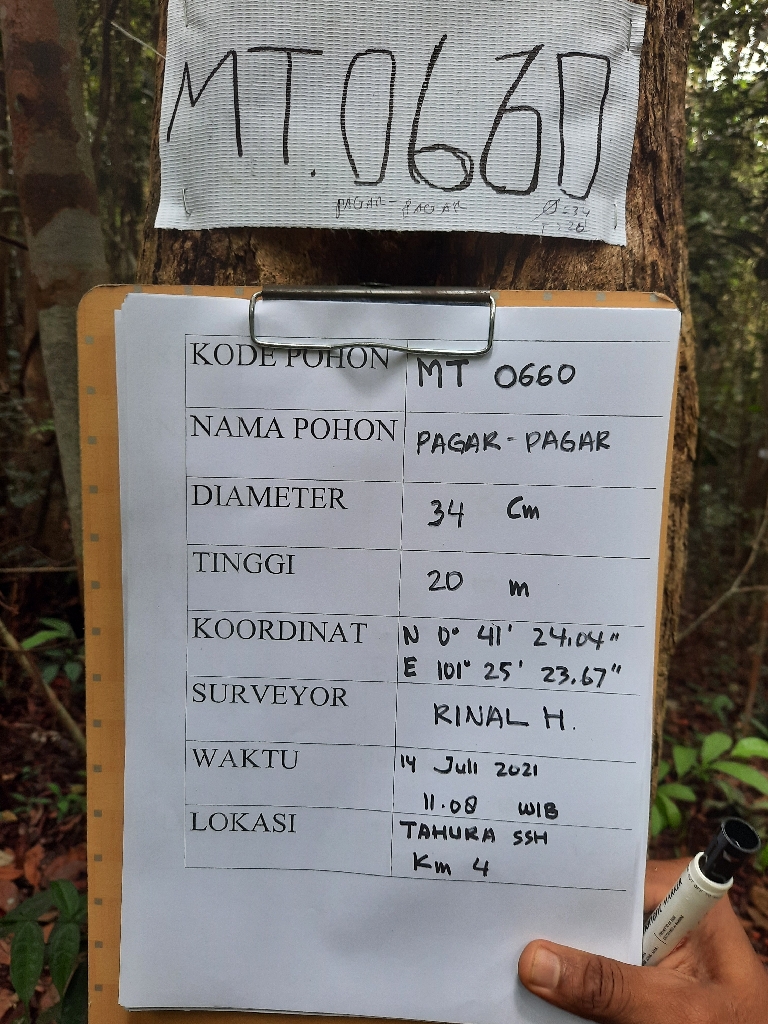 MT.0660
PAGAR-PAGAR
Ø=34
T=20
KODE POHON MT 0660
NAMA POHON PAGAR-PAGAR
DIAMETER 34 Cm
TINGGI 20 m
KOORDINAT N 0° 41' 24.04"
E 101° 25' 23.67"
SURVEYOR RINAL H.
WAKTU 14 Juli 2021
11.08 WIB
LOKASI TAHURA SSH
Km 4